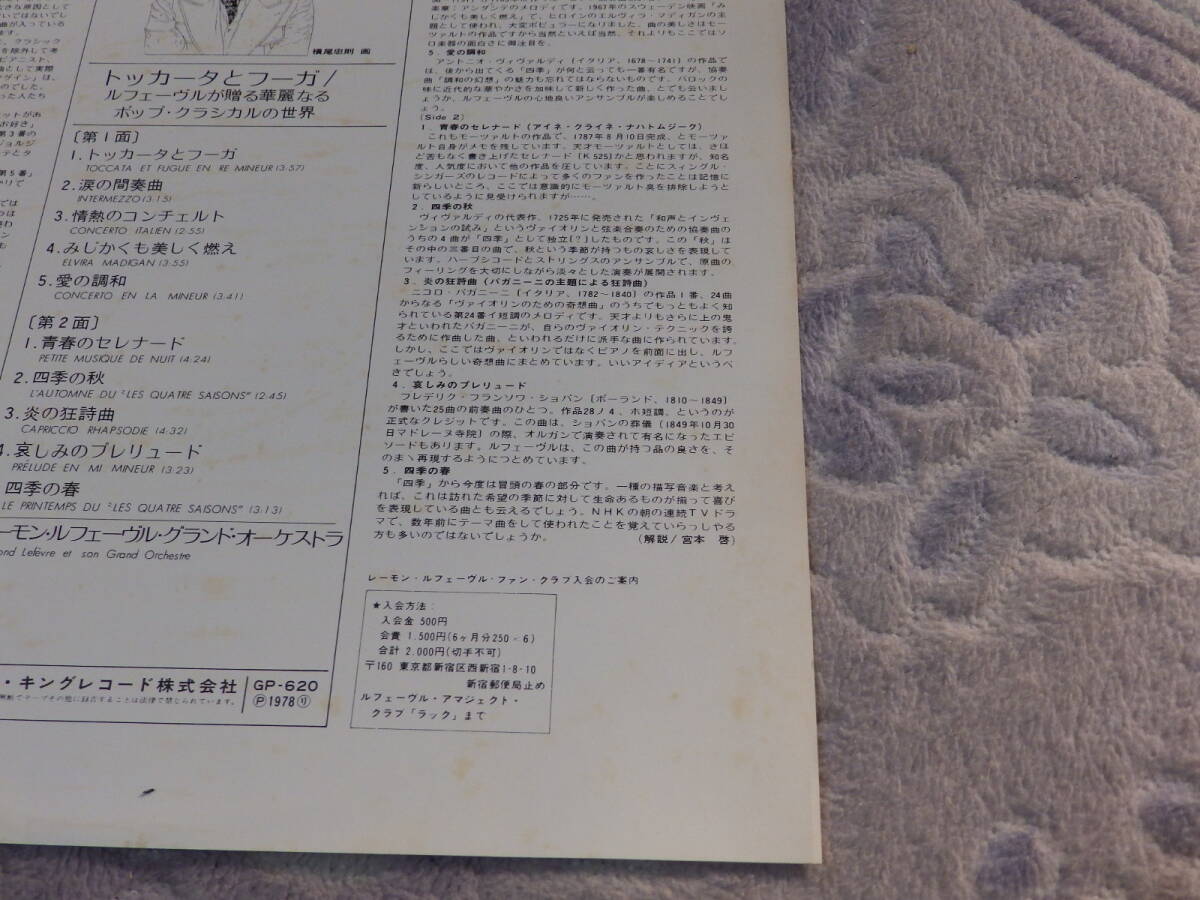 きな原因として
いではないでし
曲が入っている
ます。
、クラシック
を除外して考
ピアニスト、
曲として実際
ゲイン」は、
のでした。
った人たち
ットがあ
お好き」
第3番の
ジョルジ
テとタ
第5番」
横尾忠則 画
トッカータとフーガ/
ルフェーヴルが贈る華麗なる
ポップ・クラシカルの世界
〔第1面〕
1.トッカータとフーガ
TOCCATA ET FUGUE EN RE MINEUR (3:57)
2.涙の間奏曲
INTERMEZZO (3:15)
3.情熱のコンチェルト
CONCERTO ITALIEN (2:55)
4.みじかくも美しく燃え
ELVIRA MADIGAN (3:55)
5.愛の調和
CONCERTO EN LA MINEUR (3:41)
〔第2面〕
1.青春のセレナード
PETITE MUSIQUE DE NUIT (4:24)
2.四季の秋
L'AUTOMNE DU "LES QUATRE SAISONS" (2:45)
3.炎の狂詩曲
CAPRICCIO RHAPSODIE (4:32)
4.哀しみのプレリュード
PRÉLUDE EN MI MINEUR (3:23)
四季の春
LE PRINTEMPS DU "LES QUATRE SAISONS" (3:13)
ーモン・ルフェーヴル・グランド・オーケストラ
ond Lefèvre et son Grand Orchestre
・キングレコード株式会社 GP-620
無断でテープその他に録音することは法律で禁じられています。 Ⓟ1978
楽章:アンダンテのメロディです。1967年のスウェーデン映画「み
じかくも美しく燃え」で、ヒロインのエルヴィラ・マディガンの主
題として使われ、大変ポピュラーになりました。曲の美しさはモー
ツァルトの作品ですから当然といえば当然、それよりもここではソ
ロ楽器の面白さに御注目を。
5.愛の調和
アントニオ・ヴィヴァルディ(イタリア、1678〜1741)の作品で
は、後から出てくる「四季」が何と云っても一番有名ですが、協奏
曲「調和の幻想」の魅力も忘れてはならないものです。バロックの
味に近代的な華やかさを加味して新しく作った曲、とでも云いまし
ょうか、ルフェーヴルの心地良いアンサンブルが楽しめることでし
ょう。
(Side 2)
1.青春のセレナード(アイネ・クライネ・ナハトムジーク)
これもモーツァルトの作品で、1787年8月10日完成、とモーツァ
ルト自身がメモを残しています。天才モーツァルトとしては、さほ
ど苦もなく書き上げたセレナード(K525)かと思われますが、知名
度、人気度において他の作品を圧しています。ことにスィングル・
シンガーズのレコードによって多くのファンを作ったことは記憶に
新らしいところ、ここでは意識的にモーツァルト臭を排除しようと
しているように見受けられますが……。
2.四季の秋
ヴィヴァルディの代表作、1725年に発売された「和声とインヴェ
ンションの試み」というヴァイオリンと弦楽合奏のための協奏曲の
うちの4曲が「四季」として独立(?)したものです。この「秋」は
その中の三番目の曲で、秋という季節が持つもの哀しさを表現して
います。ハープシコードとストリングスのアンサンブルで、原曲の
フィーリングを大切にしながら淡々とした演奏が展開されます。
3.炎の狂詩曲(パガニーニの主題による狂詩曲)
ニコロ・パガニーニ(イタリア、1782〜1840)の作品1番、24曲
からなる「ヴァイオリンのための奇想曲」のうちでもっともよく知
られている第24番イ短調のメロディです。天才よりもさらに上の鬼
才といわれたパガニーニが、自らのヴァイオリン・テクニックを誇
るために作曲した曲、といわれるだけに派手な曲に作られています。
しかし、ここではヴァイオリンではなくピアノを前面に出し、ルフ
ェーヴルらしい奇想曲にまとめています。いいアイディアというべ
きでしょう。
4.哀しみのプレリュード
フレデリク・フランソワ・ショパン(ポーランド、1810〜1849)
が書いた25曲の前奏曲のひとつ。作品28ノ4、ホ短調、というのが
正式なクレジットです。この曲は、ショパンの葬儀(1849年10月30
日マドレーヌ寺院)の際、オルガンで演奏されて有名になったエピ
ソードもあります。ルフェーヴルは、この曲が持つ品の良さを、そ
のまゝ再現するようにつとめています。
5.四季の春
「四季」から今度は冒頭の春の部分です。一種の描写音楽と考え
れば、これは訪れた希望の季節に対して生命あるものが揃って喜び
を表現している曲とも云えるでしょう。NHKの朝の連続TVドラ
マで、数年前にテーマ曲として使われたことを覚えていらっしやる
方も多いのではないでしょうか。 (解説/宮本 啓)
レーモン・ルフェーヴル・ファン・クラブ入会のご案内
★入会方法:
入会金 500円
会費 1.500円(6ヶ月分250×6)
合計 2.000円(切手不可)
〒160 東京都新宿区西新宿1-8-10
新宿郵便局止め
ルフェーヴル・アマジェクト・
クラブ「ラック」まで